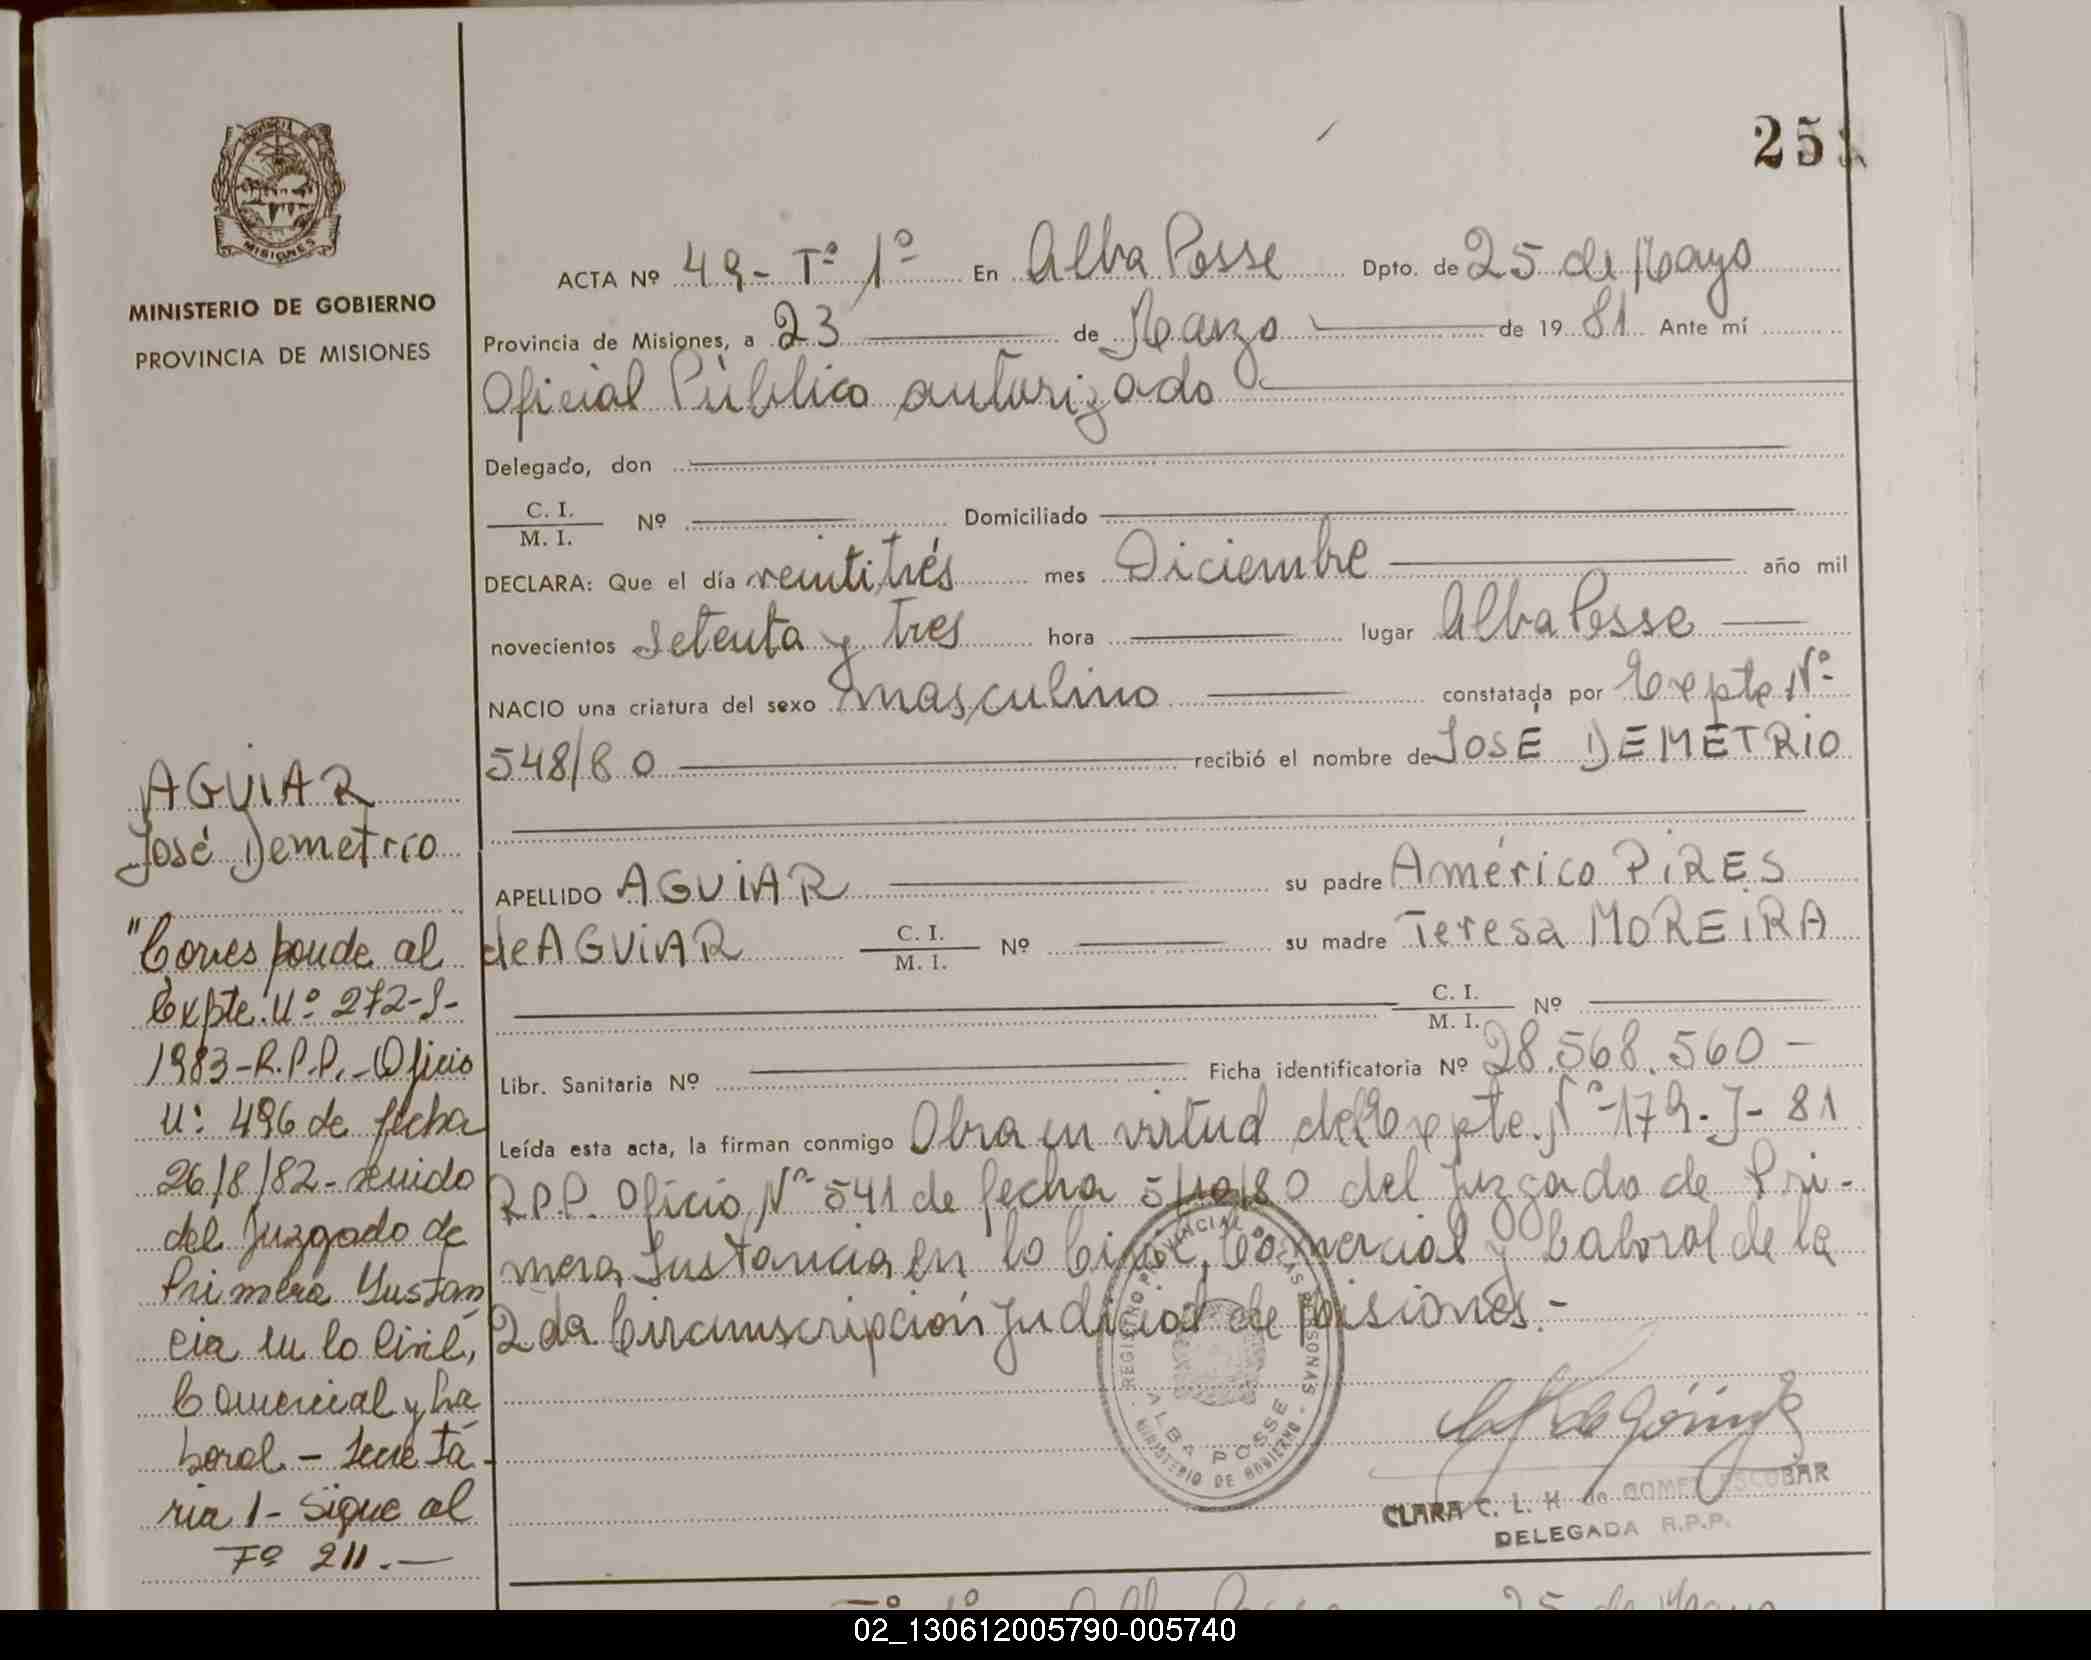 25
MISIONES
MINISTERIO DE GOBIERNO
PROVINCIA DE MISIONES
AGUIAR
José Demetrio
"Corresponde al
Expte. Nº 272-S-
1983-R.P.P.-Oficio
Nº 496 de fecha
26/8/82-
del Juzgado de
Primera Instan
cia en lo Civil,
Comercial y La
boral - Secreta-
ria 1- Sigue al
Fº 211.-
ACTA Nº 49- Tº 1º En Alba Posse Dpto. de 25 de Mayo
Provincia de Misiones, a 23 de Marzo de 1981 Ante mí
Oficial Público autorizado
Delegado, don
C. I.
M. I.
Nº Domiciliado
DECLARA: Que el día veintitrés mes Diciembre año mil
novecientos setenta y tres hora lugar Alba Posse
NACIO una criatura del sexo masculino constatada por Expte Nº
548/80 recibió el nombre de JOSÉ DEMETRIO
APELLIDO AGUIAR su padre Américo PIRES
de AGUIAR C. I. M. I. Nº su madre Teresa MOREIRA
C. I. M. I. Nº
Libr. Sanitaria Nº Ficha identificatoria Nº 28.568.560-
Leída esta acta, la firman conmigo Obra en virtud del Expte. Nº 179-J-81
R.P.P. Oficio Nº 541 de fecha 5/10/80 del Juzgado de Pri-
mera Instancia en lo Civil, Comercial y Laboral de la
2da Circunscripción Judicial de Misiones.-
REGISTRO PROVINCIAL DE LAS PERSONAS
ALBA POSSE
MINISTERIO DE GOBIERNO
CLARA C. L. H. de GOMEZ ESCOBAR
DELEGADA R.P.P.
Tº 1º Alba Posse 25 de Mayo
02_130612005790-005740